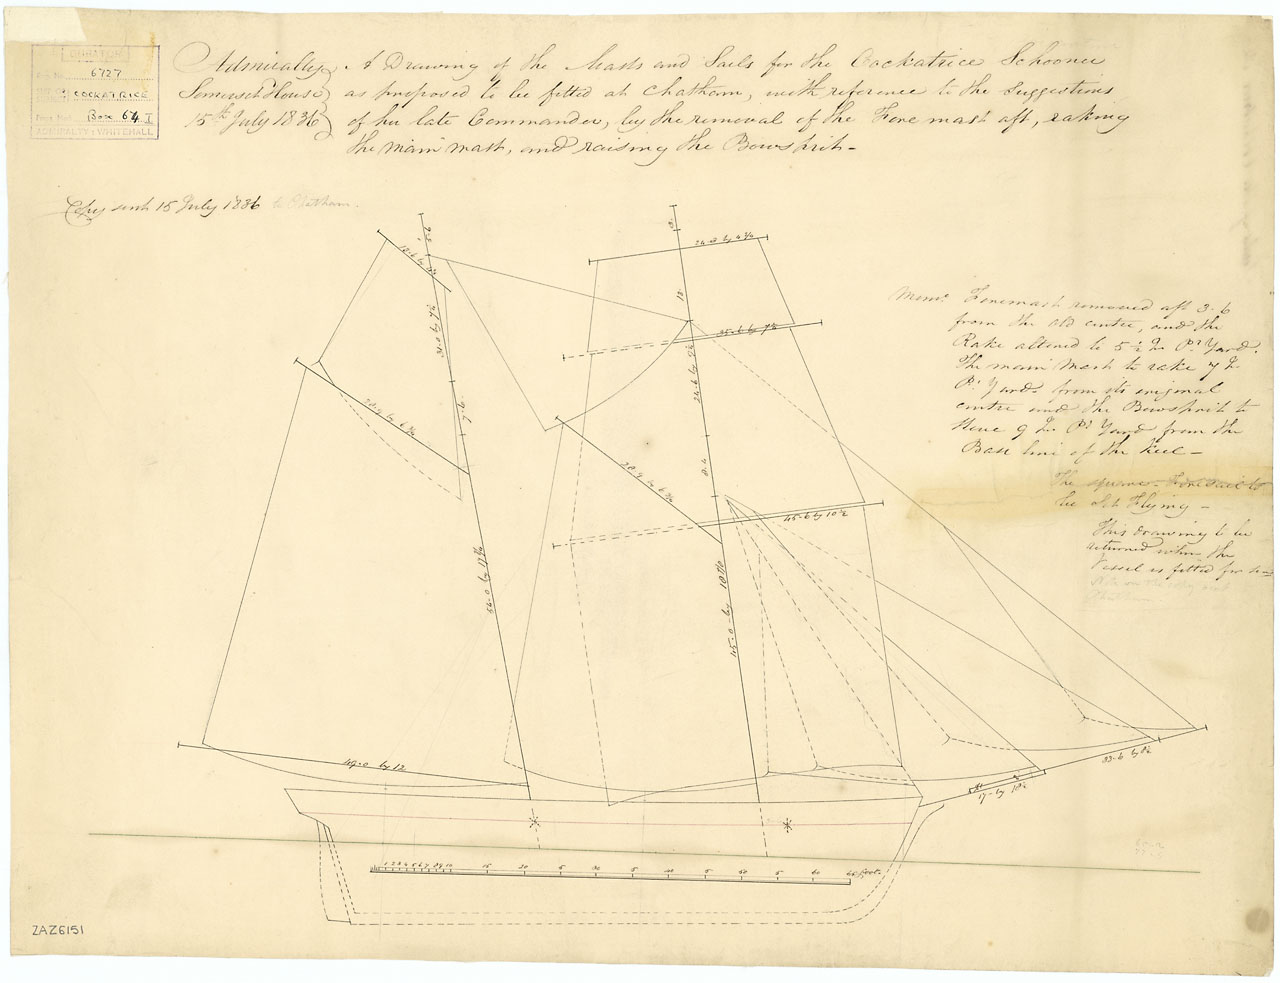 6727
COCKATRICE
Box 64 I
ADMIRALTY WHITEHALL
Admiralty
Somerset House
15th July 1836
A Drawing of the Masts and Sails for the Cockatrice Schooner
as proposed to be fitted at Chatham, with reference to the Suggestions
of her late Commander, by the removal of the Fore mast aft, raking
the Main mast, and raising the Bowsprit -
Copy sent 15 July 1836 to Chatham.
Memo. Foremast removed aft 3.6
from the old centre, and the
Rake altered to 5½ In Pr Yard.
The main Mast to rake 7 In
Pr Yard from its original
centre and the Bowsprit to
Steve 9 In Pr Yard from the
Base line of the Keel -
The square Foresail to
be Set Flying -
This drawing to be
returned when the
Vessel is fitted for sea
5.6
31.0 by 7¼
7.6
56.0 by 17¼
49.0 by 12
24.0 by 4¾
15
35.6 by 7½
8.4
45.6 by 10½
45.0 by
33.6 by 8½
17. by
1 2 3 4 5 6 7 8 9 10 15 20 5 30 5 40 5 50 5 60 65 feet.
ZAZ6151